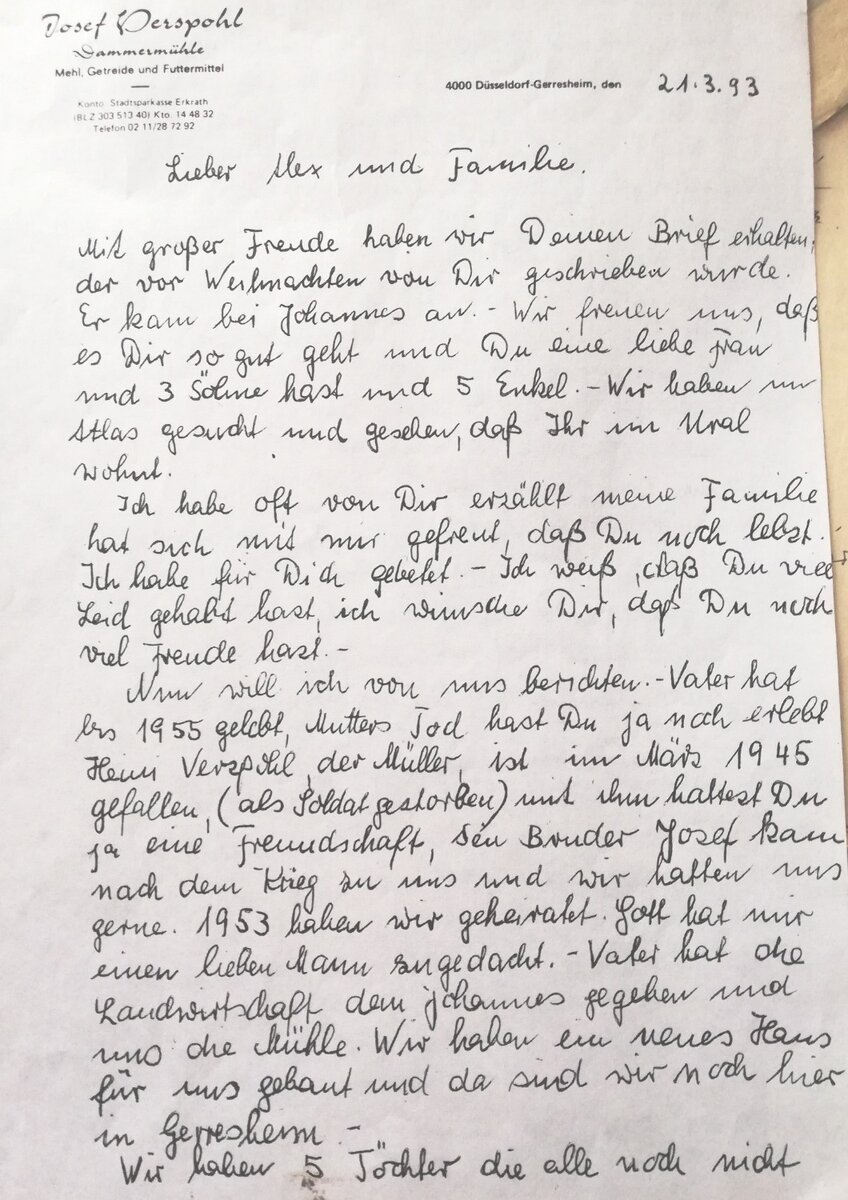 Josef Verspohl
Dammermühle
Mehl, Getreide und Futtermittel
Konto: Stadtsparkasse Erkrath
(BLZ 303 513 40) Kto. 14 48 32
Telefon 02 11/28 72 92
4000 Düsseldorf-Gerresheim, den 21.3.93
Lieber Alex und Familie.
Mit großer Freude haben wir Deinen Brief erhalten,
der vor Weihnachten von Dir geschrieben wurde.
Er kam bei Johannes an. - Wir freuen uns, daß
es Dir so gut geht und Du eine liebe Frau
und 3 Söhne hast und 5 Enkel. - Wir haben im
Atlas gesucht und gesehen, daß Ihr im Ural
wohnt.
Ich habe oft von Dir erzählt meine Familie
hat sich mit mir gefreut, daß Du noch lebst.
Ich habe für Dich gebetet. - Ich weiß, daß Du viel
Leid gehabt hast, ich wünsche Dir, daß Du noch
viel Freude hast. -
Nun will ich von uns berichten. - Vater hat
bis 1955 gelebt, Mutters Tod hast Du ja noch erlebt
Heini Verspohl, der Müller, ist im März 1945
gefallen, (als Soldat gestorben) mit ihm hattest Du
ja eine Freundschaft, sein Bruder Josef kam
nach dem Krieg zu uns und wir hatten uns
gerne. 1953 haben wir geheiratet. Gott hat mir
einen lieben Mann zugedacht. - Vater hat die
Landwirtschaft dem Johannes gegeben und
uns die Mühle. Wir haben ein neues Haus
für uns gebaut und da sind wir noch hier
in Gerresheim -
Wir haben 5 Töchter die alle noch nicht